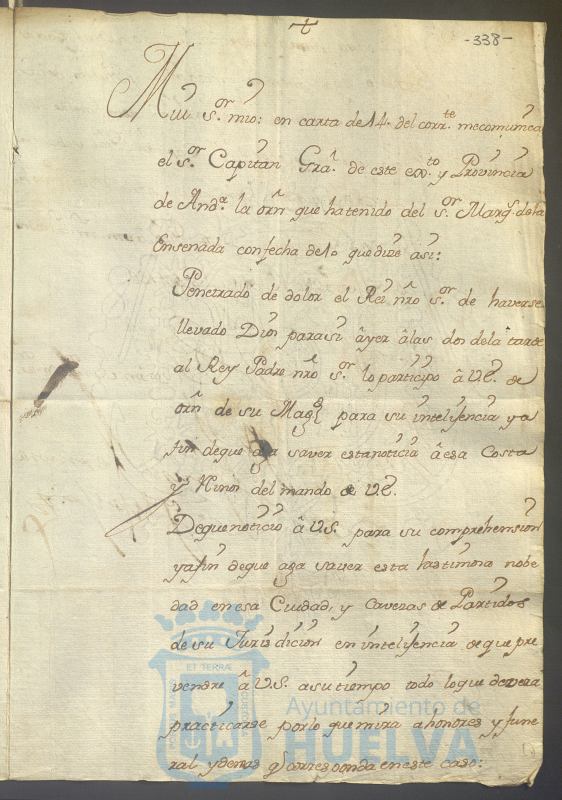 -338-
Mui s.or mio: en carta de 14. del corr.te me comunica
el s.or Capitan Gra.l de este ex.to y Provincia
de And.a la orn que ha tenido del s.or Marq.s de la
Ensenada con fecha de 10 que dize asi:
Penetrado de dolor el Rei nro s.or de haverse
llevado Dios para si âyer âlas dos dela tarde
al Rey Padre nro s.or lo participo â V.E. de
orn de su Mag.d para su intelijencia y a
fin de que aga saver esta noticia â esa Costa
del mando de V.E.
De que noticio â V.S. para su comprehension
y a fin de que aga saver esta lastimosa nobe
dad en esa Ciudad, y Caveras de Partidos
de su Jurisdicion en intelijencia de que pre
vendre â V.S. a su tiempo todo lo que devera
practicarse por lo que mira a honores y fune
ral y demas q.e corresponda en este caso:
ET TERRÆ
Ayuntamiento de
HUELVA